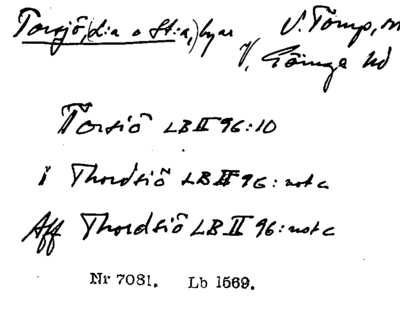 Torsjö, (L:a o St:a,) byar V. Torup, sn
V. Göinge hd
Torsiö LB II 96:10
i Thordsiö LB II 96: not c
Aff Thordsiö LB II 96: not c
Nr 7081. Lb 1569.